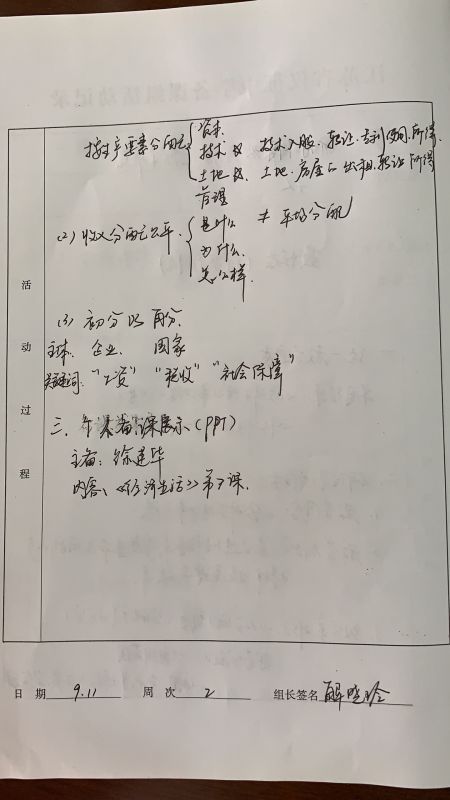 按生产要素分配
资本
技术 技术入股、转让、专利使用所得
土地 土地、房屋 出租、转让所得
管理
(2) 收入分配公平
是什么 ≠ 平均分配
为什么
怎么样
(3) 初分 再分
主体: 企业 国家
关键词: "工资" "税收" "社会保障"
三、个人备课展示(PPT)
主备: 徐建华
内容:《经济生活》第7课
活动过程
日 期 9.11 周 次 2 组长签名